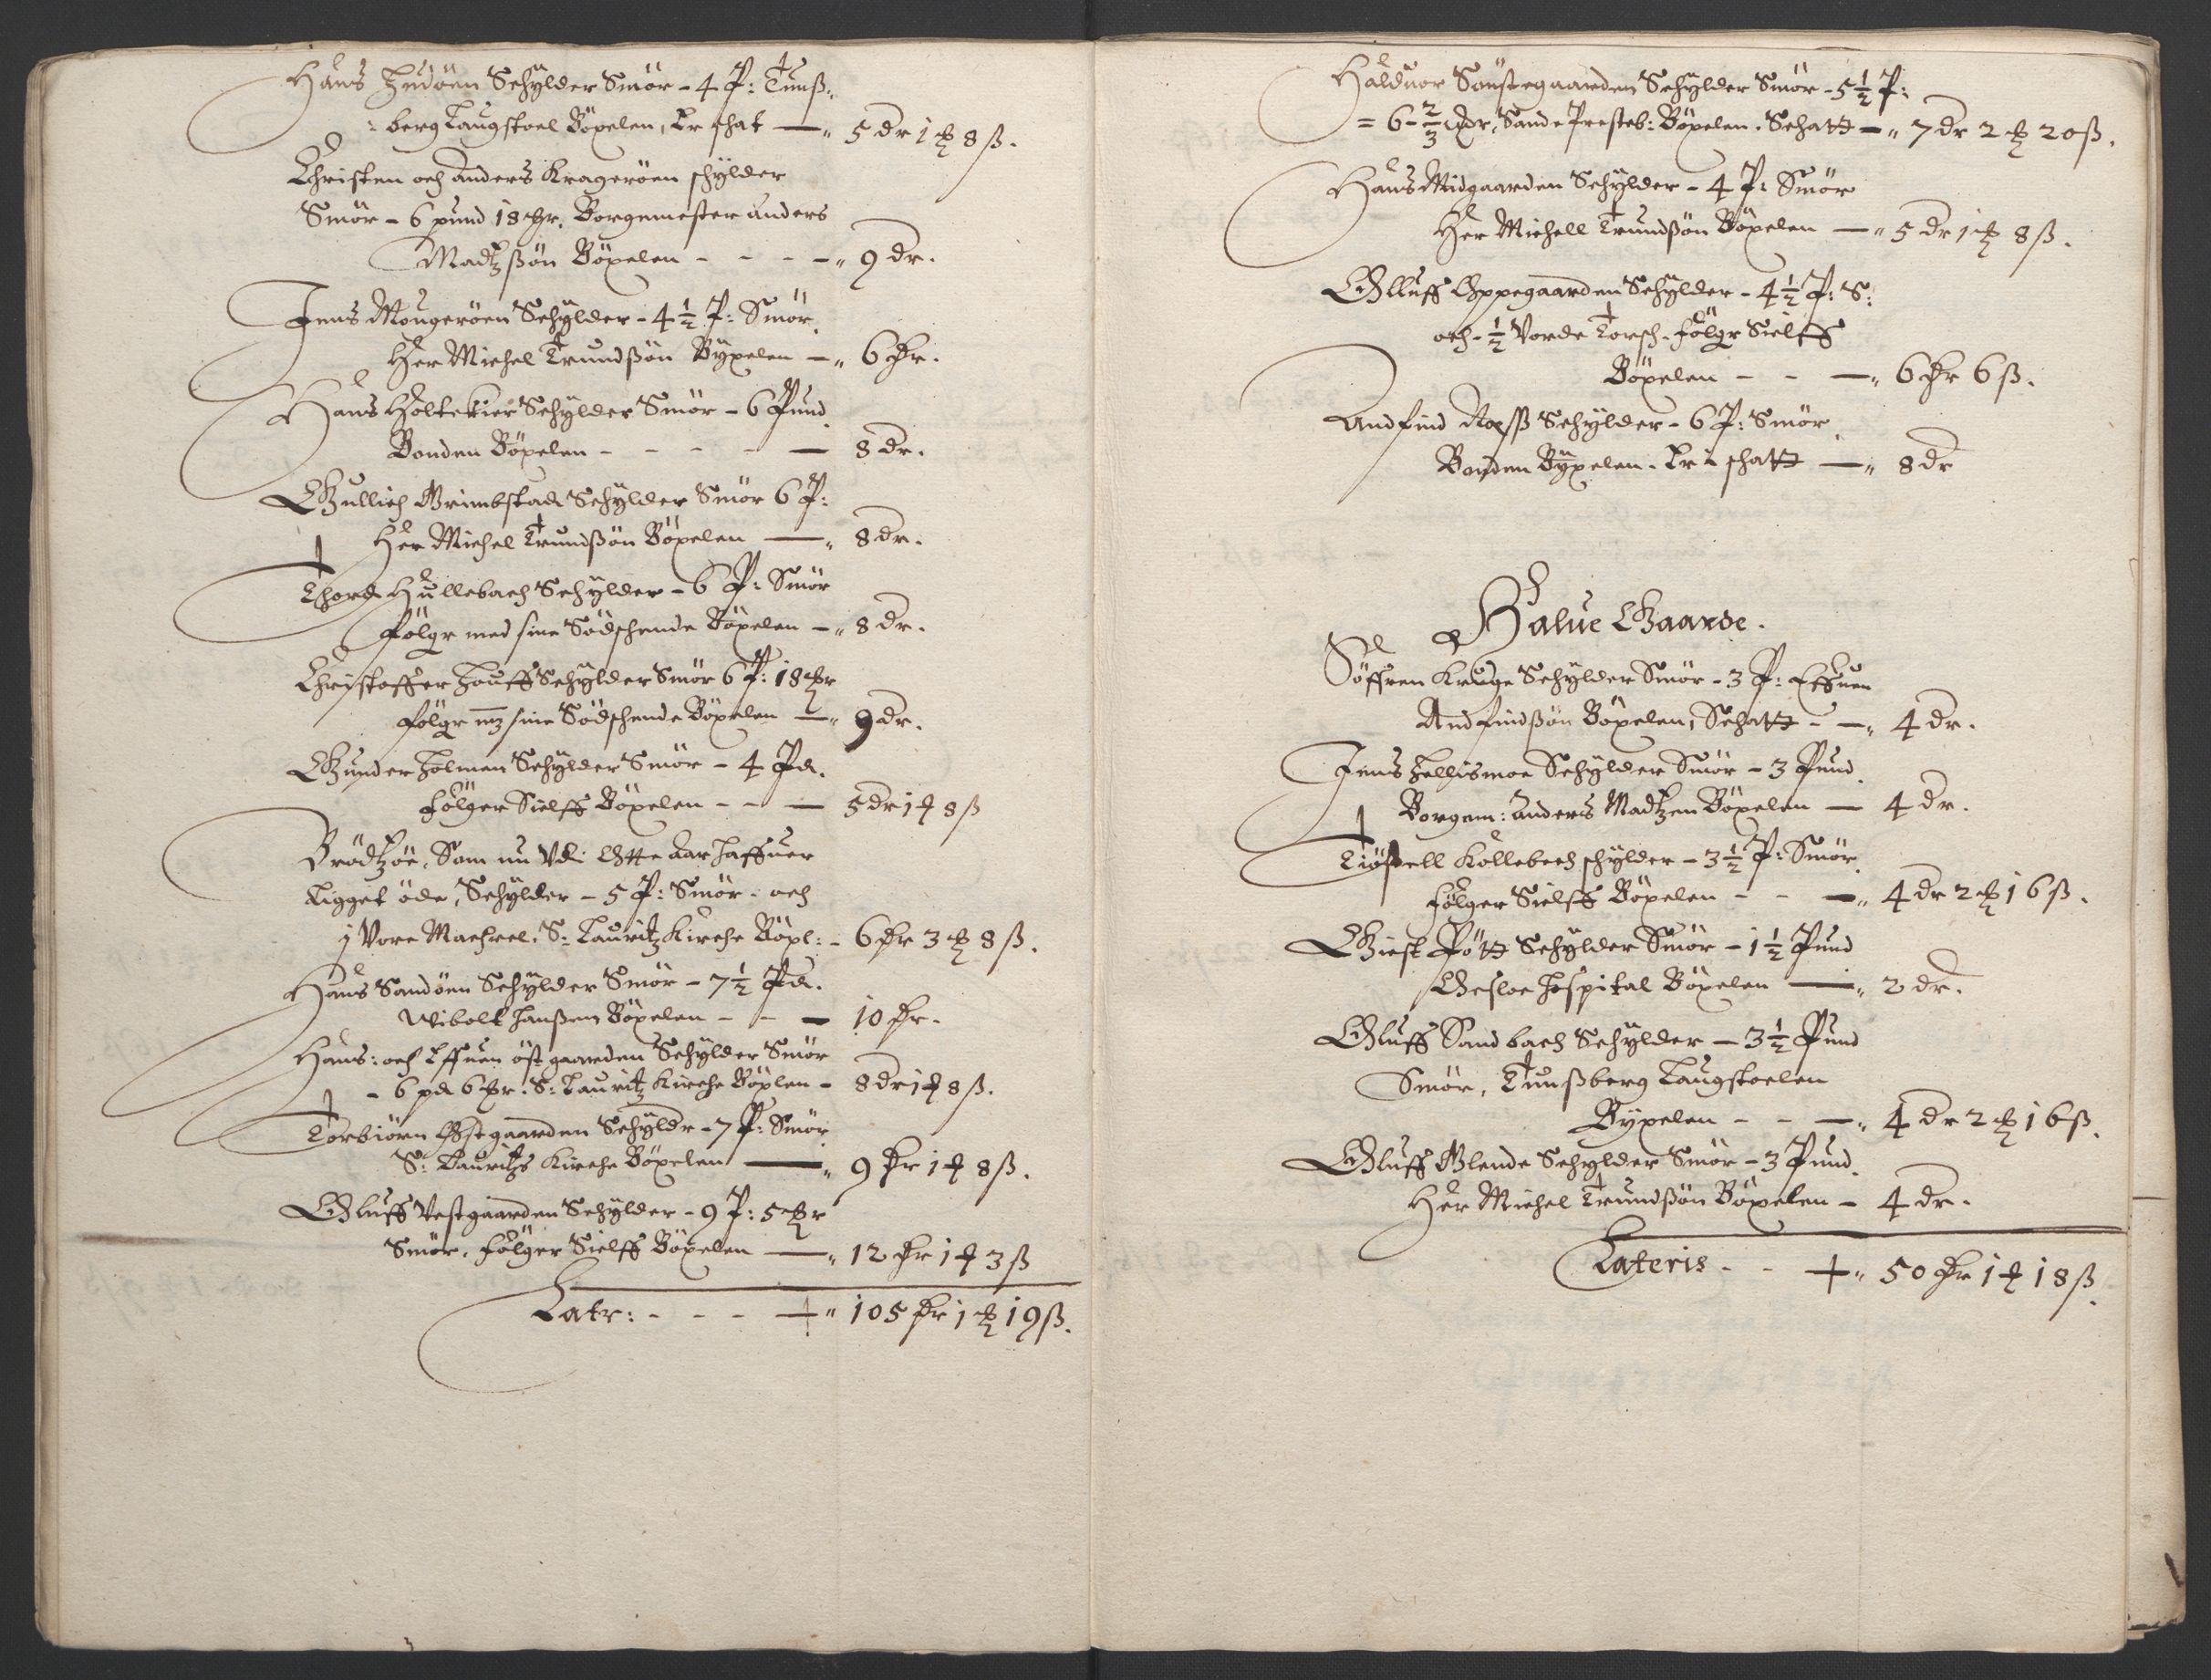 Hans Hudöen Schylder Smör - 4 P: Tunß-
: berg Laugstoel Böxelen, Er schat — 5 dr 1 ₰ 8 ß.
Christen och Anders Krageröen schylder
Smör - 6 pund 18 ₰r. Borgemester Anders
Madtzßön Böxelen - - - - 9 dr.
Jens Mougeröen Schylder - 4½ P: Smör.
Her Michel Trundßön Byxelen — 6 dr.
Hans Holtekier Schylder Smör - 6 Pund.
Bonden Böxelen - - - - — 8 dr.
Gullich Grimbstad Schylder Smör 6 P:
Her Michel Trundßön Böxelen — 8 dr.
Thord Hullebach Schylder - 6 P: Smör
Fölgr med sine Södschende Böxelen - 8 dr.
Christoffer Houff Schylder Smör 6 P: 18 ₰r
Fölgr mz sine Södschende Böxelen — 9 dr.
Gunder Holmen Schylder Smör - 4 Pd.
Fölger Sielff Böxelen - - — 5 dr 1 ₰ 8 ß
Brödtzöe, Som nu Vdi Otte Aar haffuer
Ligget öde, Schylder - 5 P: Smör. och
j Vore Machrel. S: Lauritz Kirche Böxl: - 6 dr 3 ₰ 8 ß.
Hans Sandöen Schylder Smör - 7½ Pd.
Wibolt Hanßen Böxelen - - — 10 dr.
Hans: och Effuen östgaarden Schylder Smör
- 6 pd 6 ₰r. S: Lauritz Kirche Böxlen - 8 dr 1 ₰ 8 ß.
Torbiörn Östgaarden Schyldr - 7 P: Smör
S: Lauritzs Kirche Böxelen — 9 dr 1 ₰ 8 ß.
Oluff Vestgaarden Schylder - 9 P: 5 ₰r
Smör. Fölger Sielff Böxelen — 12 dr 1 ₰ 3 ß
Latr: - - - — 105 dr 1 ₰ 19 ß.
Halduor Söustegaarden Schylder Smör - 5½ P:
= 6 - 2/3 ₰r, Sande Presteb: Böxelen. Schatt — 7 dr 2 ₰ 20 ß.
Hans Midgaarden Schylder - 4 P: Smör
Her Michell Trundßön Böxelen — 5 dr 1 ₰ 8 ß.
Olluff Oppegaarden Schylder - 4½ P: S:
och - ½ Vorde Torsch. Fölgr Sielff
Böxelen - - — 6 dr 6 ß.
Andfind Roeß Schylder - 6 P: Smör.
Bonden Byxelen. Er - schatt — 8 dr
Halue Gaarde.
Söffren Kruge Schylder Smör - 3 P: Effuen
Andfindßön Böxelen, Schatt - — 4 dr.
Jens Hellismoe Schylder Smör - 3 Pund.
Borgem: Anders Madtzen Böxelen — 4 dr.
Tiöstell Kollebech schylder - 3½ P: Smör.
Fölger Sielff Böxelen - - — 4 dr 2 ₰ 16 ß.
Giest Pött Schylder Smör - 1½ Pund
Oesloe Hospital Böxelen — 2 dr.
Oluff Sandbach Schylder — 3½ Pund
Smör, Tunßberg Laugstoelen
Byxelen - - — 4 dr 2 ₰ 16 ß.
Oluff Glende Schylder Smör - 3 Pund.
Her Michel Trundßön Böxelen - 4 dr.
Lateris - - — 50 dr 1 ₰ 18 ß.